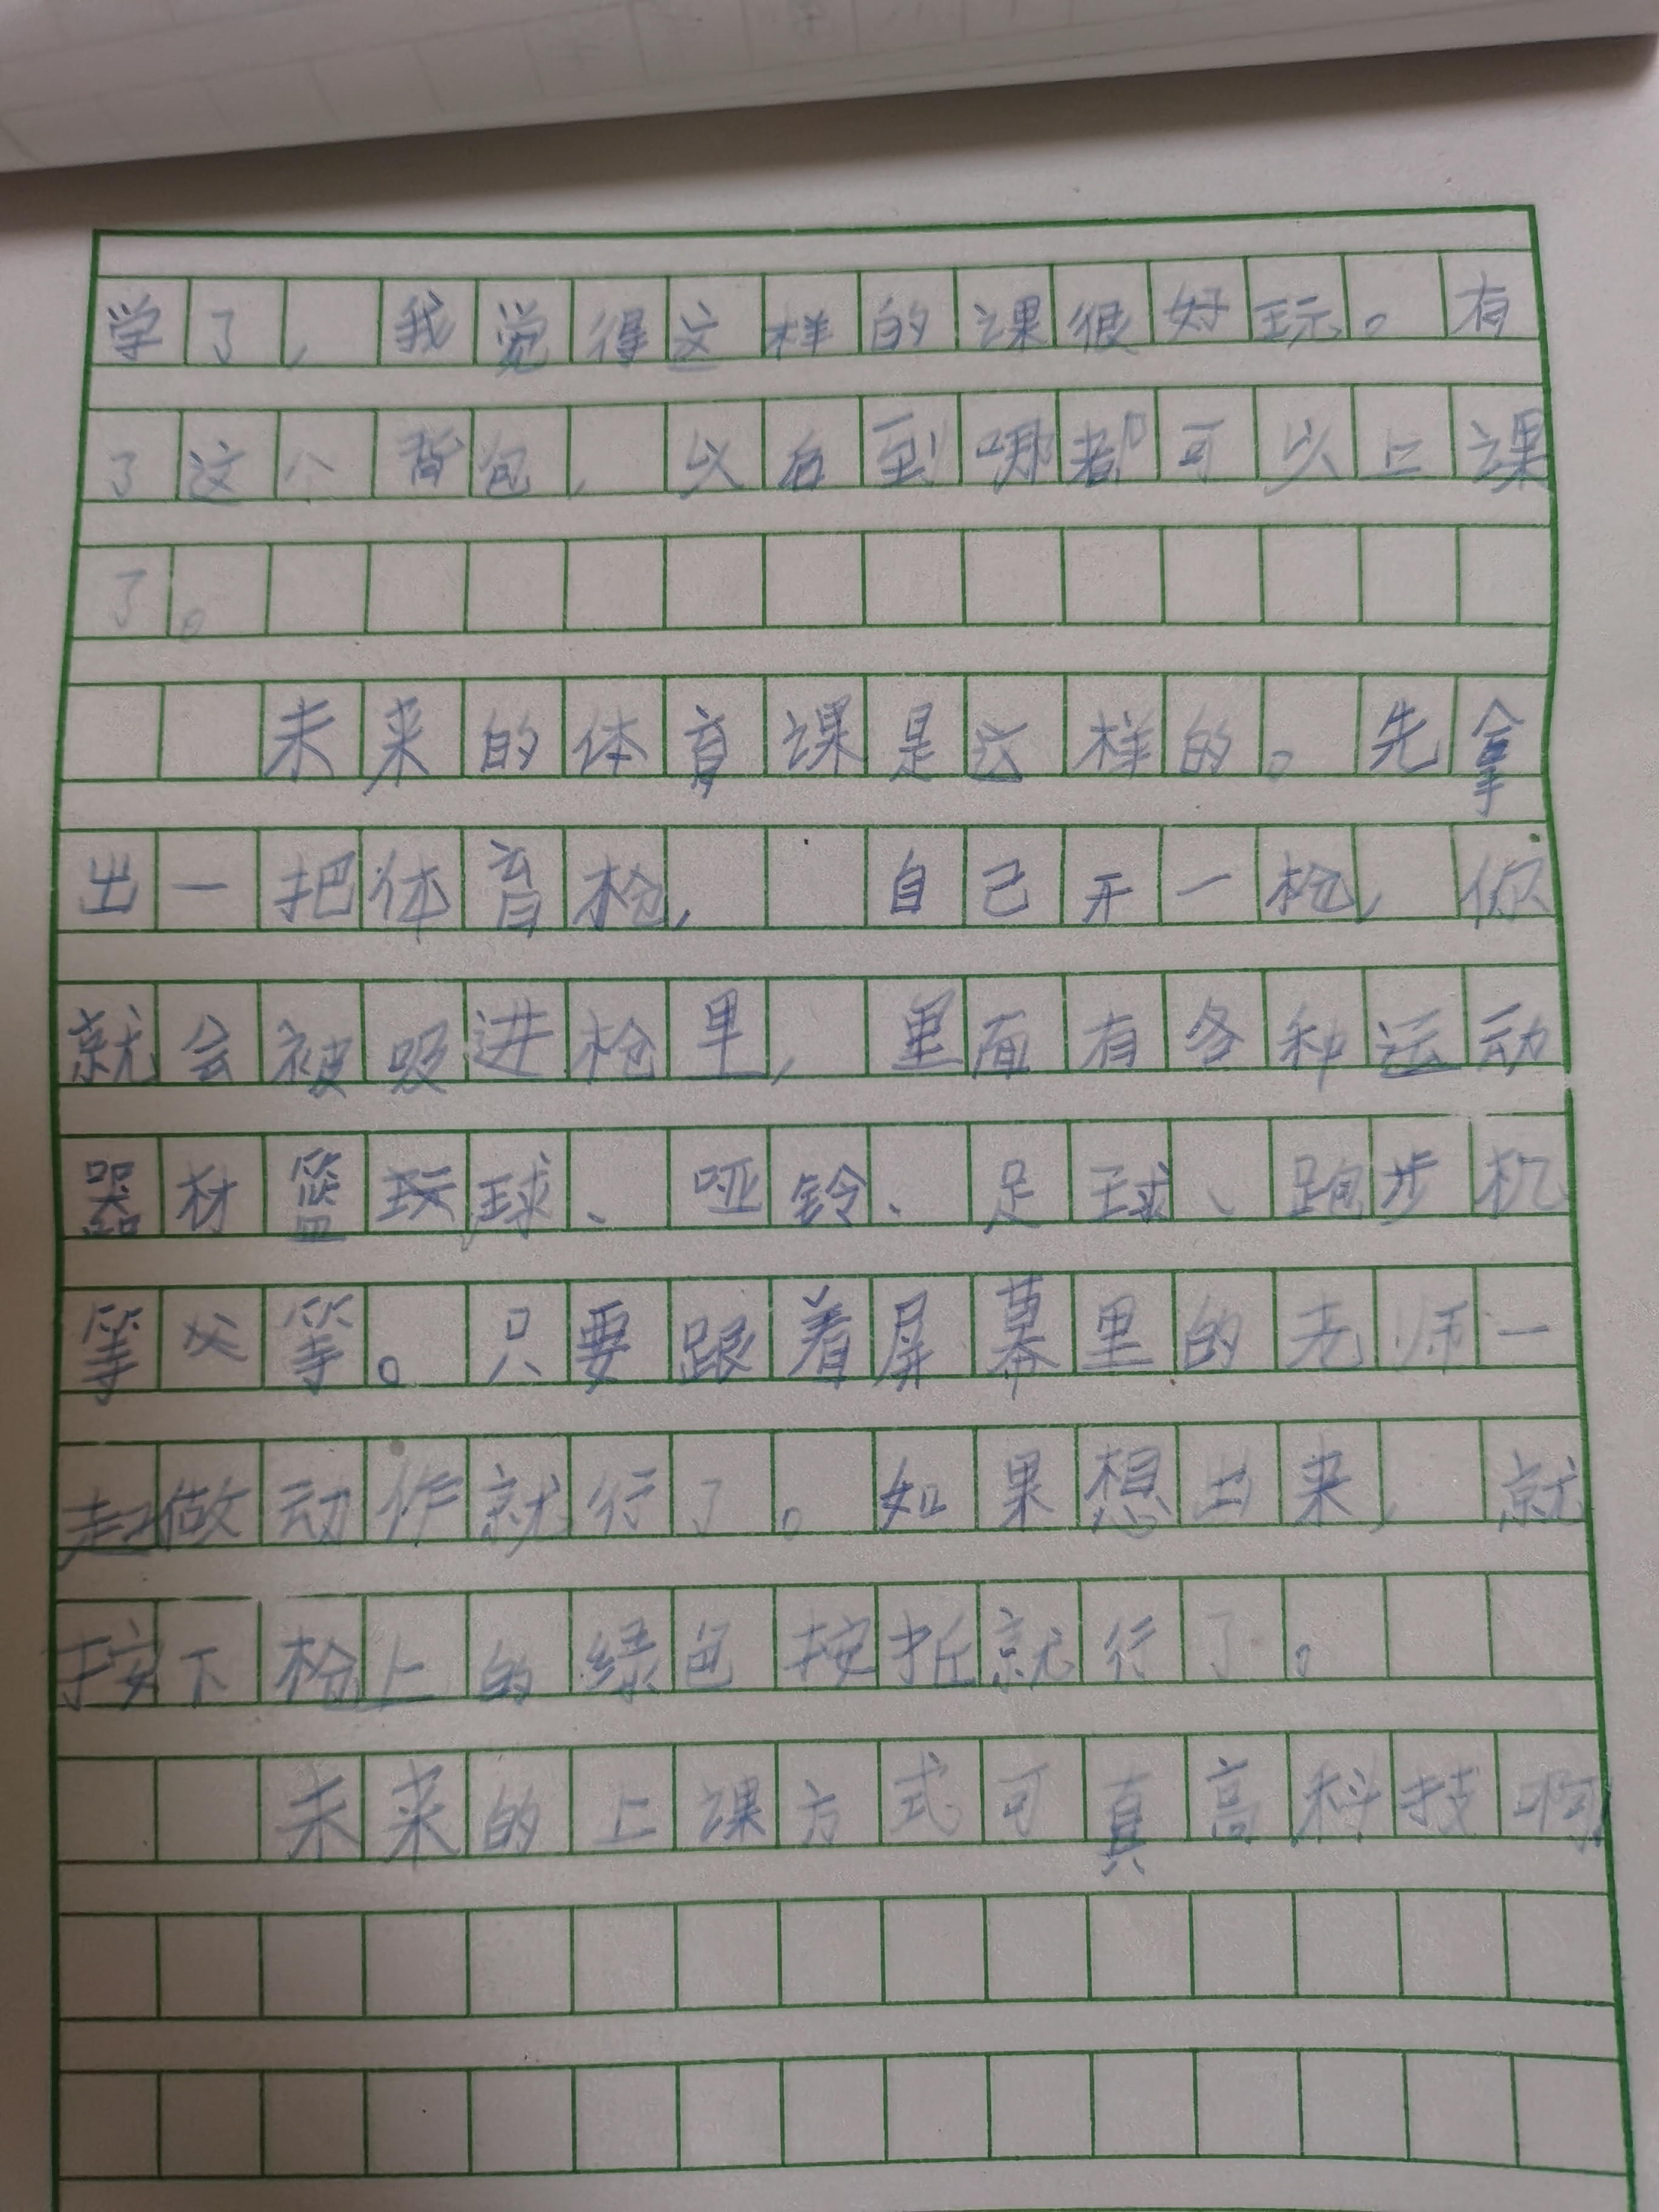 学了，我觉得这样的课很好玩。有
了这个背包，以后到哪都可以上课
了。
未来的体育课是这样的。先拿
出一把体育枪，自己开一枪，你
就会被吸进枪里，里面有各种运动
器材篮球、哑铃、足球、跑步机
等等。只要跟着屏幕里的老师一
起做动作就行了。如果想出来，就
按下枪上的绿色按就行了。
未来的上课方式可真高科技啊